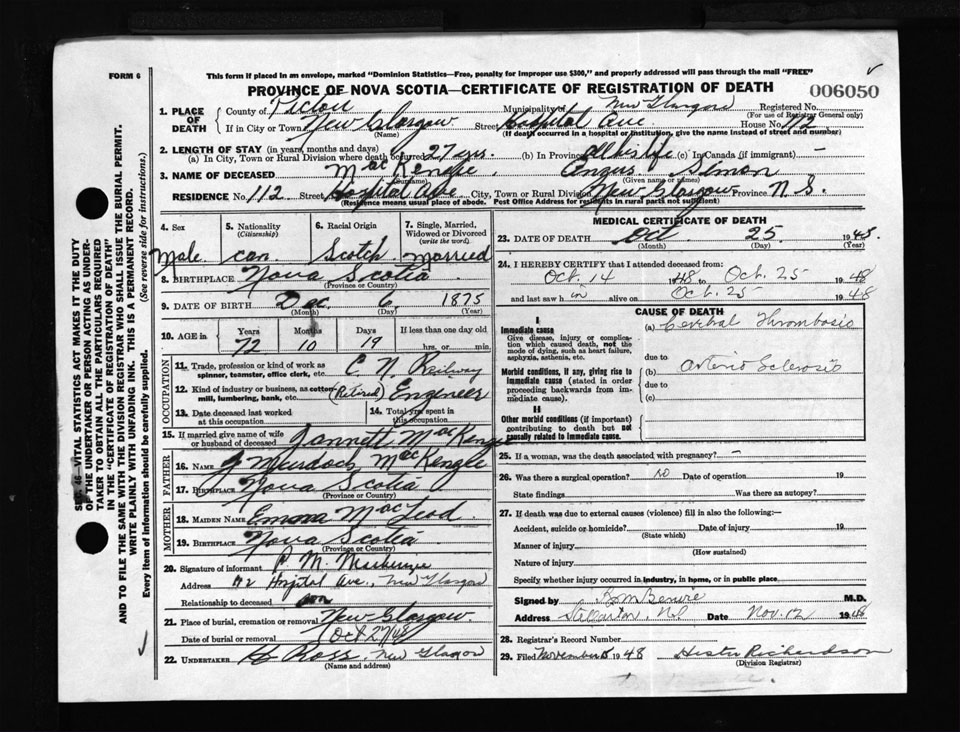 FORM 6
This form if placed in an envelope, marked "Dominion Statistics—Free, penalty for improper use $300," and properly addressed will pass through the mail "FREE"
PROVINCE OF NOVA SCOTIA—CERTIFICATE OF REGISTRATION OF DEATH
006050
1. PLACE OF DEATH
County of Pictou Municipality of New Glasgow Registered No.
(For use of Registrar General only)
If in City or Town New Glasgow Street Hospital Ave House No. 112
(Name) (If death occurred in a hospital or institution, give the name instead of street and number)
2. LENGTH OF STAY (in years, months and days)
(a) In City, Town or Rural Division where death occurred 27 yrs. (b) In Province all his life (c) In Canada (if immigrant) —
3. NAME OF DECEASED MacKenzie, Angus Simon
(Surname) (Given name or names)
RESIDENCE No. 112 Street Hospital Ave City, Town or Rural Division New Glasgow Province N.S.
(Residence means usual place of abode. Post Office Address for residents in rural parts not sufficient)
4. Sex
Male
5. Nationality
(Citizenship)
can
6. Racial Origin
Scotch
7. Single, Married, Widowed or Divorced
(write the word)
Married
8. BIRTHPLACE Nova Scotia
(Province or Country)
9. DATE OF BIRTH Dec 6 1875
(Month) (Day) (Year)
10. AGE in Years Months Days If less than one day old
72 10 19 hrs. or min.
OCCUPATION
11. Trade, profession or kind of work as spinner, teamster, office clerk, etc. C. N. Railway
12. Kind of industry or business, as cotton mill, lumbering, bank, etc. (Retired) Engineer
13. Date deceased last worked at this occupation
14. Total yrs. spent in this occupation
15. If married give name of wife or husband of deceased Jannett MacKenzie
FATHER
16. NAME J Murdoch MacKenzie
17. BIRTHPLACE Nova Scotia
(Province or Country)
MOTHER
18. MAIDEN NAME Emma MacLeod
19. BIRTHPLACE Nova Scotia
(Province or Country)
20. Signature of informant M. Mackenzie
Address 112 Hospital Ave., New Glasgow
Relationship to deceased son
21. Place of burial, cremation or removal New Glasgow
Date of burial or removal Oct 27/48
22. UNDERTAKER Ross, New Glasgow
(Name and address)
MEDICAL CERTIFICATE OF DEATH
23. DATE OF DEATH Oct 25 1948
(Month) (Day) (Year)
24. I HEREBY CERTIFY that I attended deceased from:
Oct. 14 1948 to Oct. 25 1948
and last saw him alive on Oct. 25 1948
CAUSE OF DEATH
I
Immediate cause
Give disease, injury or complication which caused death, not the mode of dying, such as heart failure, asphyxia, asthenia, etc.
(a) Cerebal Thrombosis
due to
Morbid conditions, if any, giving rise to immediate cause (stated in order proceeding backwards from immediate cause).
(b) Arterio Sclerosis
due to
(c)
II
Other morbid conditions (if important) contributing to death but not causally related to immediate cause.
25. If a woman, was the death associated with pregnancy? —
26. Was there a surgical operation? no Date of operation 19
State findings Was there an autopsy?
27. If death was due to external causes (violence) fill in also the following:—
Accident, suicide or homicide? Date of injury 19
(State which)
Manner of injury
(How sustained)
Nature of injury
Specify whether injury occurred in industry, in home, or in public place
Signed by M.D.
Address Stellarton, N.S. Date Nov. 12 1948
28. Registrar's Record Number
29. Filed November 1948 Hester Richardson
(Division Registrar)
VITAL STATISTICS ACT MAKES IT THE DUTY
OF THE UNDERTAKER OR PERSON ACTING AS UNDERTAKER TO OBTAIN ALL THE PARTICULARS REQUIRED
IN THE "CERTIFICATE OF REGISTRATION OF DEATH"
AND TO FILE THE SAME WITH THE DIVISION REGISTRAR WHO SHALL ISSUE THE BURIAL PERMIT.
WRITE PLAINLY WITH UNFADING INK. THIS IS A PERMANENT RECORD.
Every item of information should be carefully supplied. (See reverse side for instructions.)